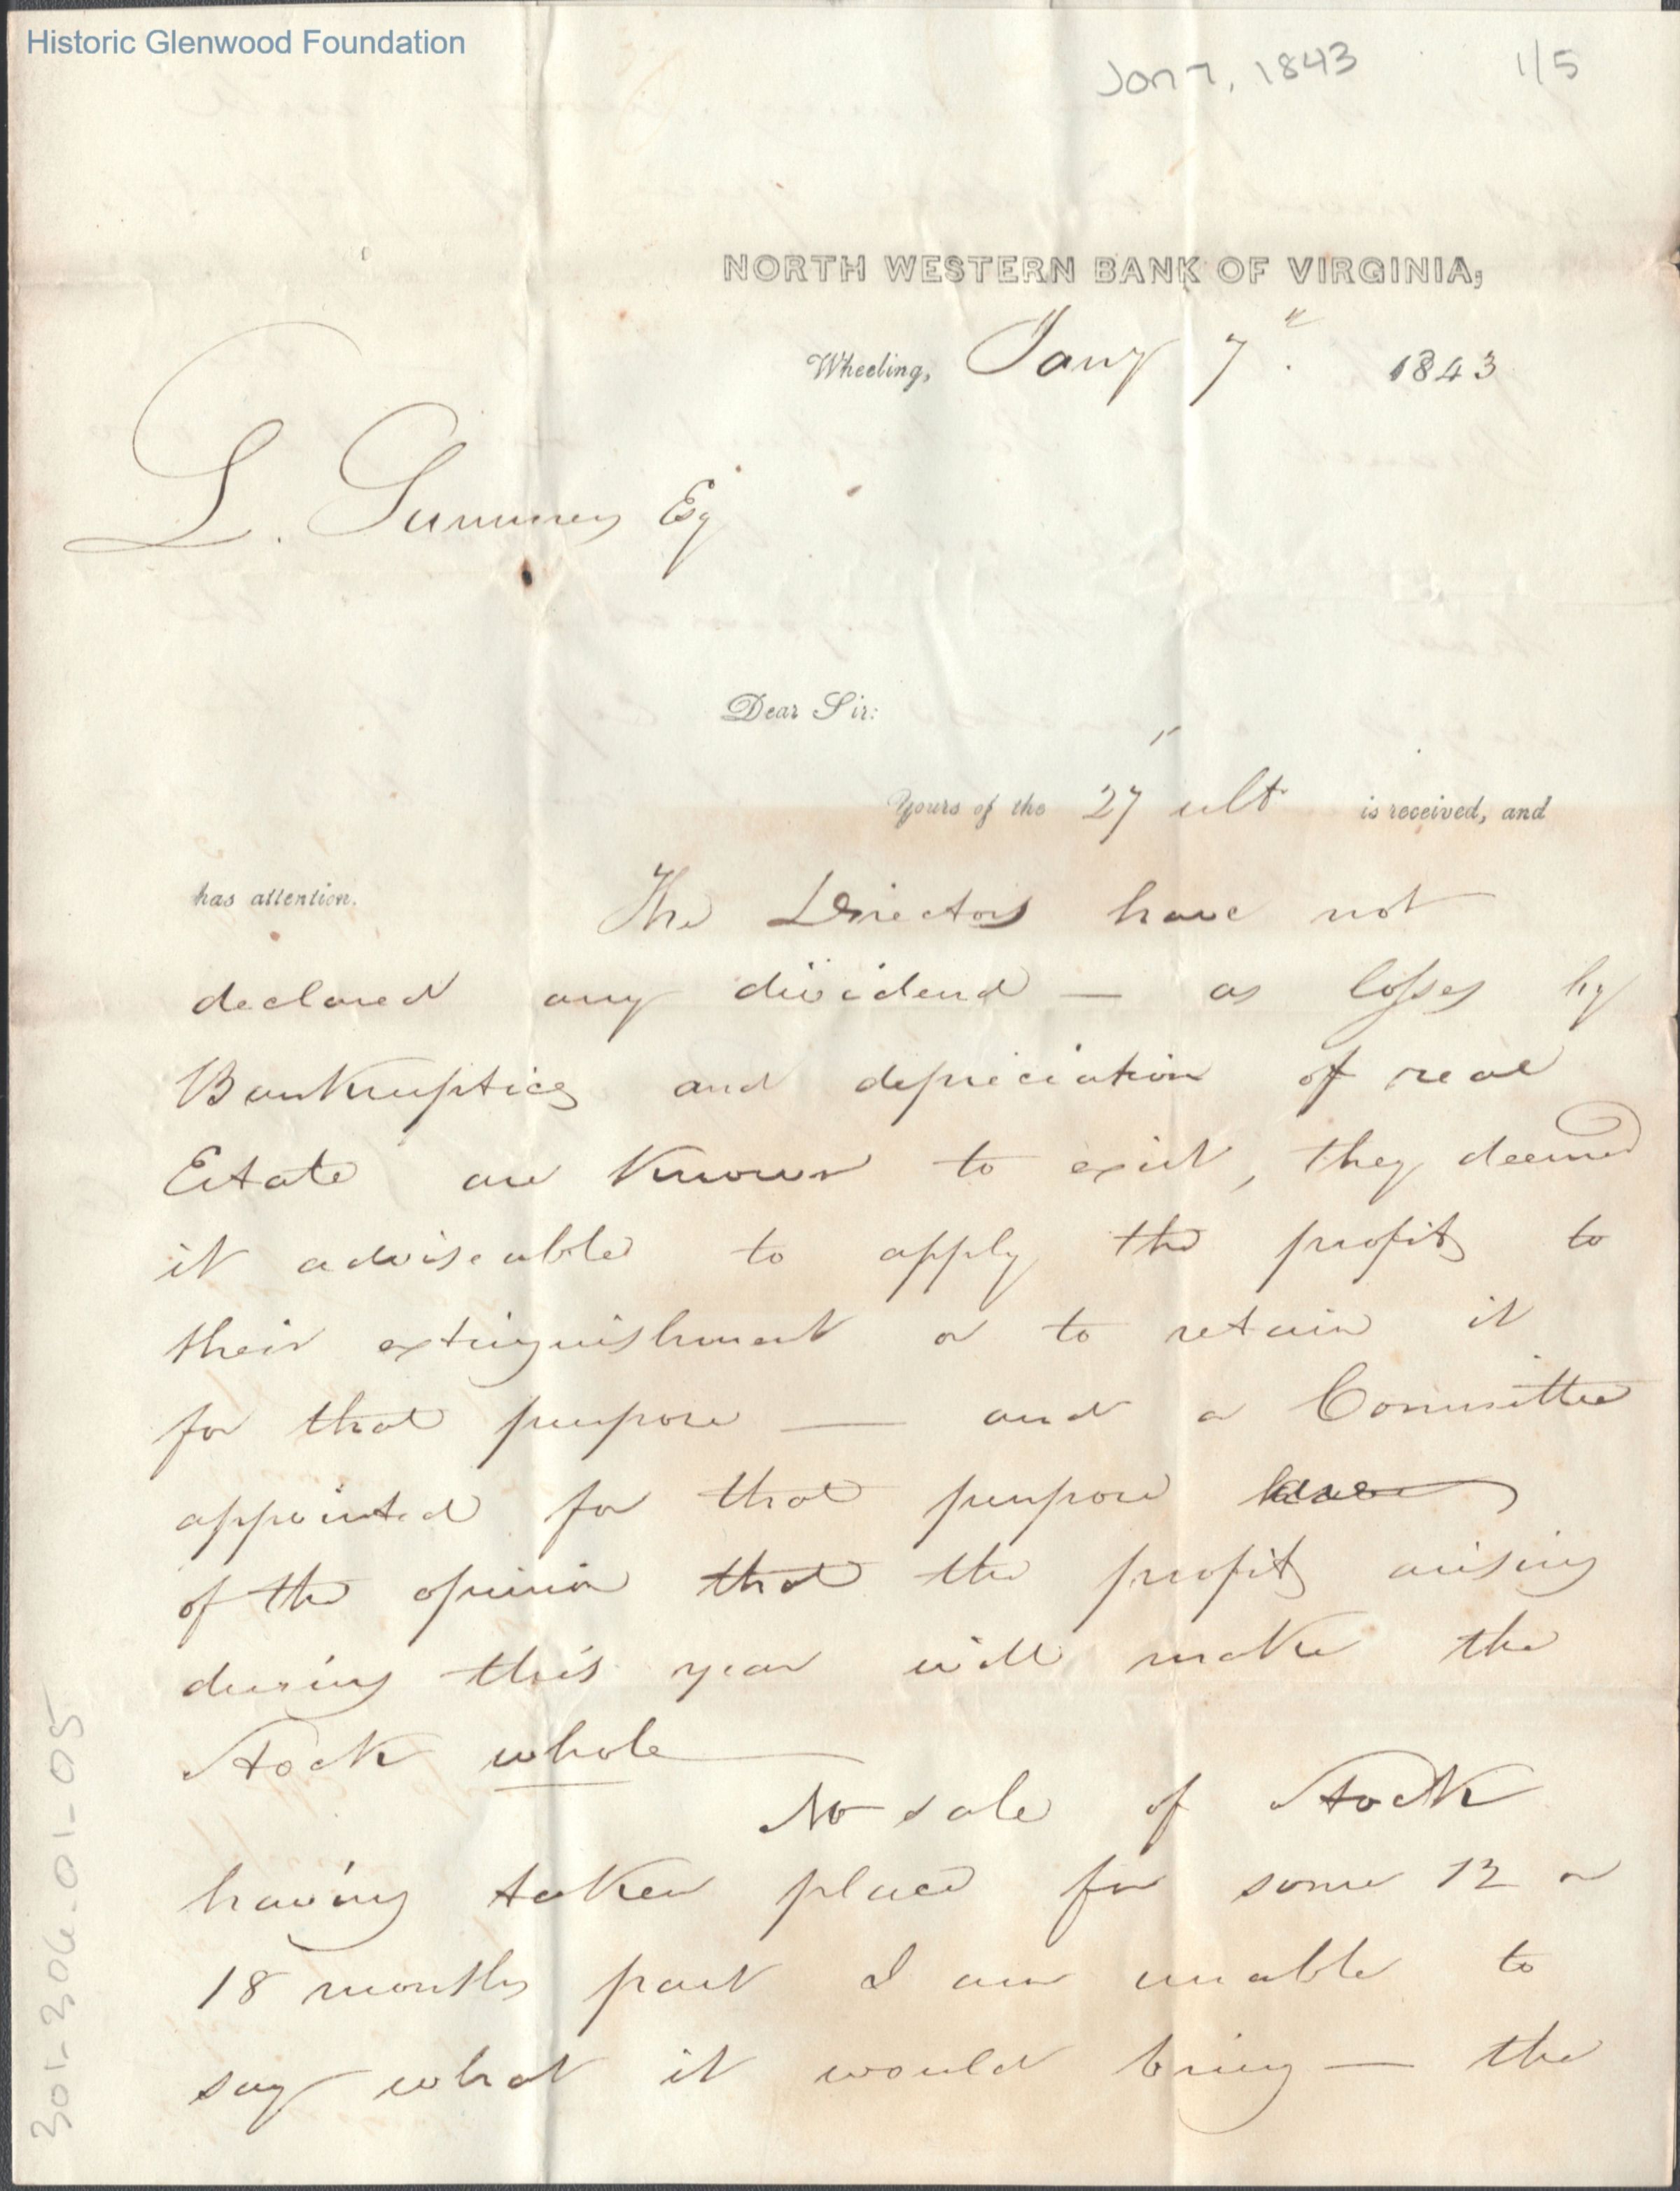 Historic Glenwood Foundation
Jan 7, 1843 1/5
NORTH WESTERN BANK OF VIRGINIA,
Wheeling, Jany 7" 1843
L. Summers Esq
Dear Sir:
Yours of the 27" ult is received, and
has attention. The Directors have not
declared any dividend — as losses by
Bankruptcies and depreciation of real
Estate are known to exist, they deemed
it adviseable to apply the profits to
their extinguishment or to retain it
for that purpose — and a Committee
appointed for that purpose
of the opinion that the profits arising
during this year will make the
Stock whole
No sale of Stock
having taken place for some 12 or
18 months past I am unable to
say what it would bring — the
301-306-01-05